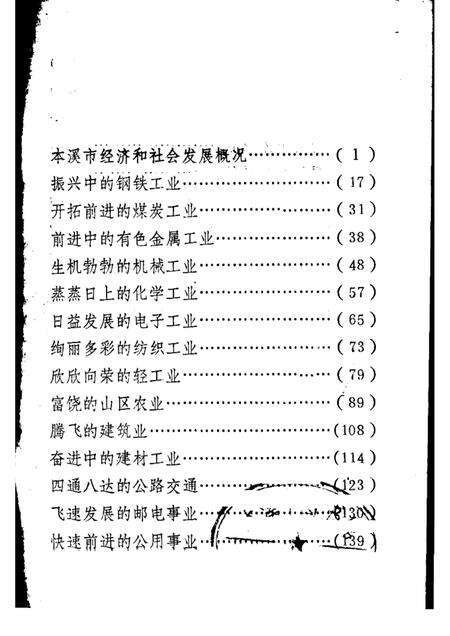 本溪市经济和社会发展概况……………( 1 )
振兴中的钢铁工业………………………( 17 )
开拓前进的煤炭工业……………………( 31 )
前进中的有色金属工业…………………( 38 )
生机勃勃的机械工业……………………( 48 )
蒸蒸日上的化学工业……………………( 57 )
日益发展的电子工业……………………( 65 )
绚丽多彩的纺织工业……………………( 73 )
欣欣向荣的轻工业………………………( 79 )
富饶的山区农业…………………………( 89 )
腾飞的建筑业……………………………(108)
奋进中的建材工业………………………(114)
四通八达的公路交通……………………(123)
飞速发展的邮电事业……………………(130)
快速前进的公用事业……………………(139)